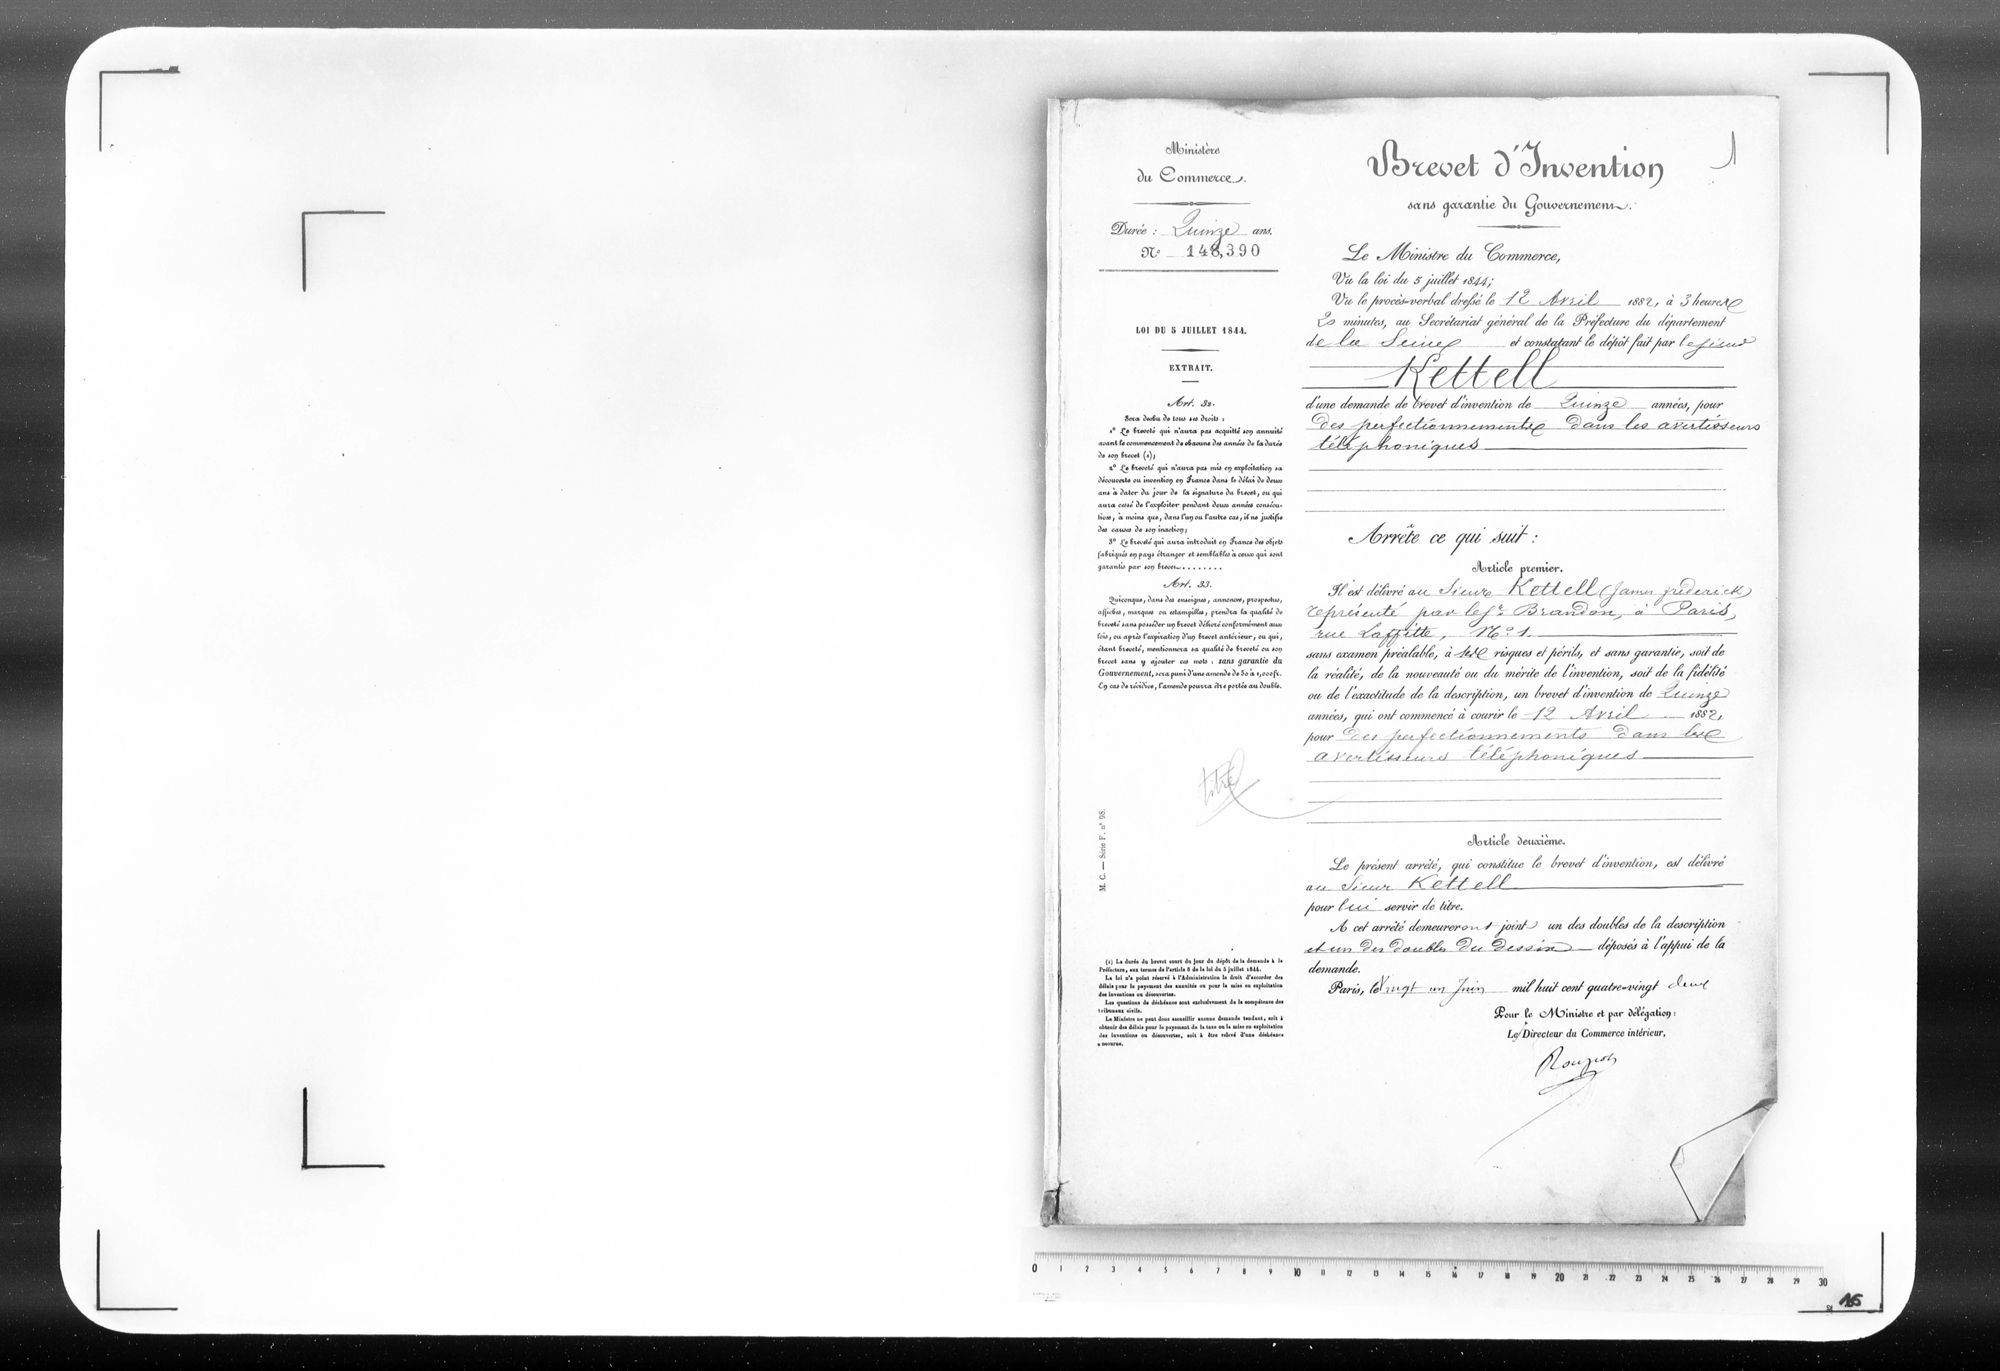 Ministère
du Commerce.
Durée : Quinze ans.
N° 148,390
LOI DU 5 JUILLET 1844.
EXTRAIT.
Art. 32.
Sera déchu de tous ses droits :
1° Le breveté qui n'aura pas acquitté son annuité
avant le commencement de chacune des années de la durée
de son brevet (1);
2° Le breveté qui n'aura pas mis en exploitation sa
découverte ou invention en France dans le délai de deux
ans à dater du jour de la signature du brevet, ou qui
aura cessé de l'exploiter pendant deux années consécu-
tives, à moins que, dans l'un ou l'autre cas, il ne justifie
des causes de son inaction;
3° Le breveté qui aura introduit en France des objets
fabriqués en pays étranger et semblables à ceux qui sont
garantis par son brevet........
Art. 33.
Quiconque, dans des enseignes, annonces, prospectus,
affiches, marques ou estampilles, prendra la qualité de
breveté sans posséder un brevet délivré conformément aux
lois, ou après l'expiration d'un brevet antérieur, ou qui,
étant breveté, mentionnera sa qualité de breveté ou son
brevet sans y ajouter ces mots : sans garantie du
Gouvernement, sera puni d'une amende de 50 à 1,000 fr.
En cas de récidive, l'amende pourra être portée au double.
titre
M. C. — Série F. n° 98.
(1) La durée du brevet court du jour du dépôt de la demande à la
Préfecture, aux termes de l'article 8 de la loi du 5 juillet 1844.
La loi n'a point réservé à l'Administration le droit d'accorder des
délais pour le payement des annuités ou pour la mise en exploitation
des inventions ou découvertes.
Les questions de déchéance sont exclusivement de la compétence des
tribunaux civils.
Le Ministre ne peut donc accueillir aucune demande tendant, soit à
obtenir des délais pour le payement de la taxe ou la mise en exploitation
des inventions ou découvertes, soit à être relevé d'une déchéance
encourue.
1
Brevet d'Invention
sans garantie du Gouvernement.
Le Ministre du Commerce,
Vu la loi du 5 juillet 1844;
Vu le procès-verbal dressé le 12 Avril 1882, à 3 heures
20 minutes, au Secrétariat général de la Préfecture du département
de la Seine et constatant le dépôt fait par le sieur
Kettell
d'une demande de brevet d'invention de Quinze années, pour
des perfectionnements dans les avertisseurs
téléphoniques
Arrête ce qui suit :
Article premier.
Il est délivré au Sieur Kettell (James frederick)
représenté par le Sr. Brandon, à Paris,
rue Laffitte, N° 1.
sans examen préalable, à ses risques et périls, et sans garantie, soit de
la réalité, de la nouveauté ou du mérite de l'invention, soit de la fidélité
ou de l'exactitude de la description, un brevet d'invention de Quinze
années, qui ont commencé à courir le 12 Avril 1882,
pour des perfectionnements dans les
avertisseurs téléphoniques
Article deuxième.
Le présent arrêté, qui constitue le brevet d'invention, est délivré
au Sieur Kettell
pour lui servir de titre.
A cet arrêté demeureront joint un des doubles de la description
et un des doubles du dessin déposés à l'appui de la
demande.
Paris, le Vingt un Juin mil huit cent quatre-vingt deux
Pour le Ministre et par délégation :
Le Directeur du Commerce intérieur,
0 1 2 3 4 5 6 7 8 9 10 11 12 13 14 15 16 17 18 19 20 21 22 23 24 25 26 27 28 29 30
16